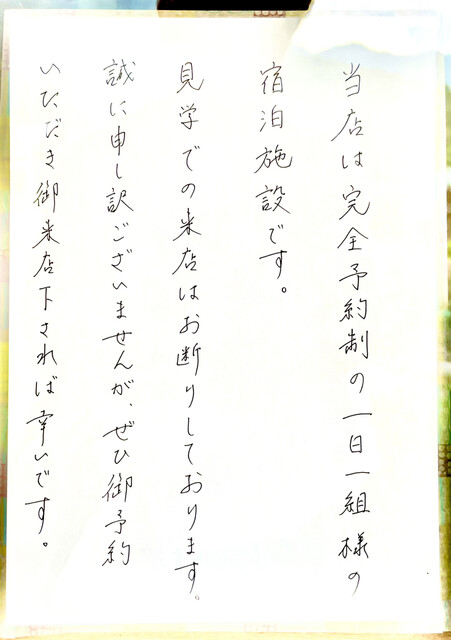 当店は完全予約制の一日一組様の
宿泊施設です。
見学での来店はお断りしております。
誠に申し訳ございませんが、ぜひ御予約
いただき御来店下されば幸いです。